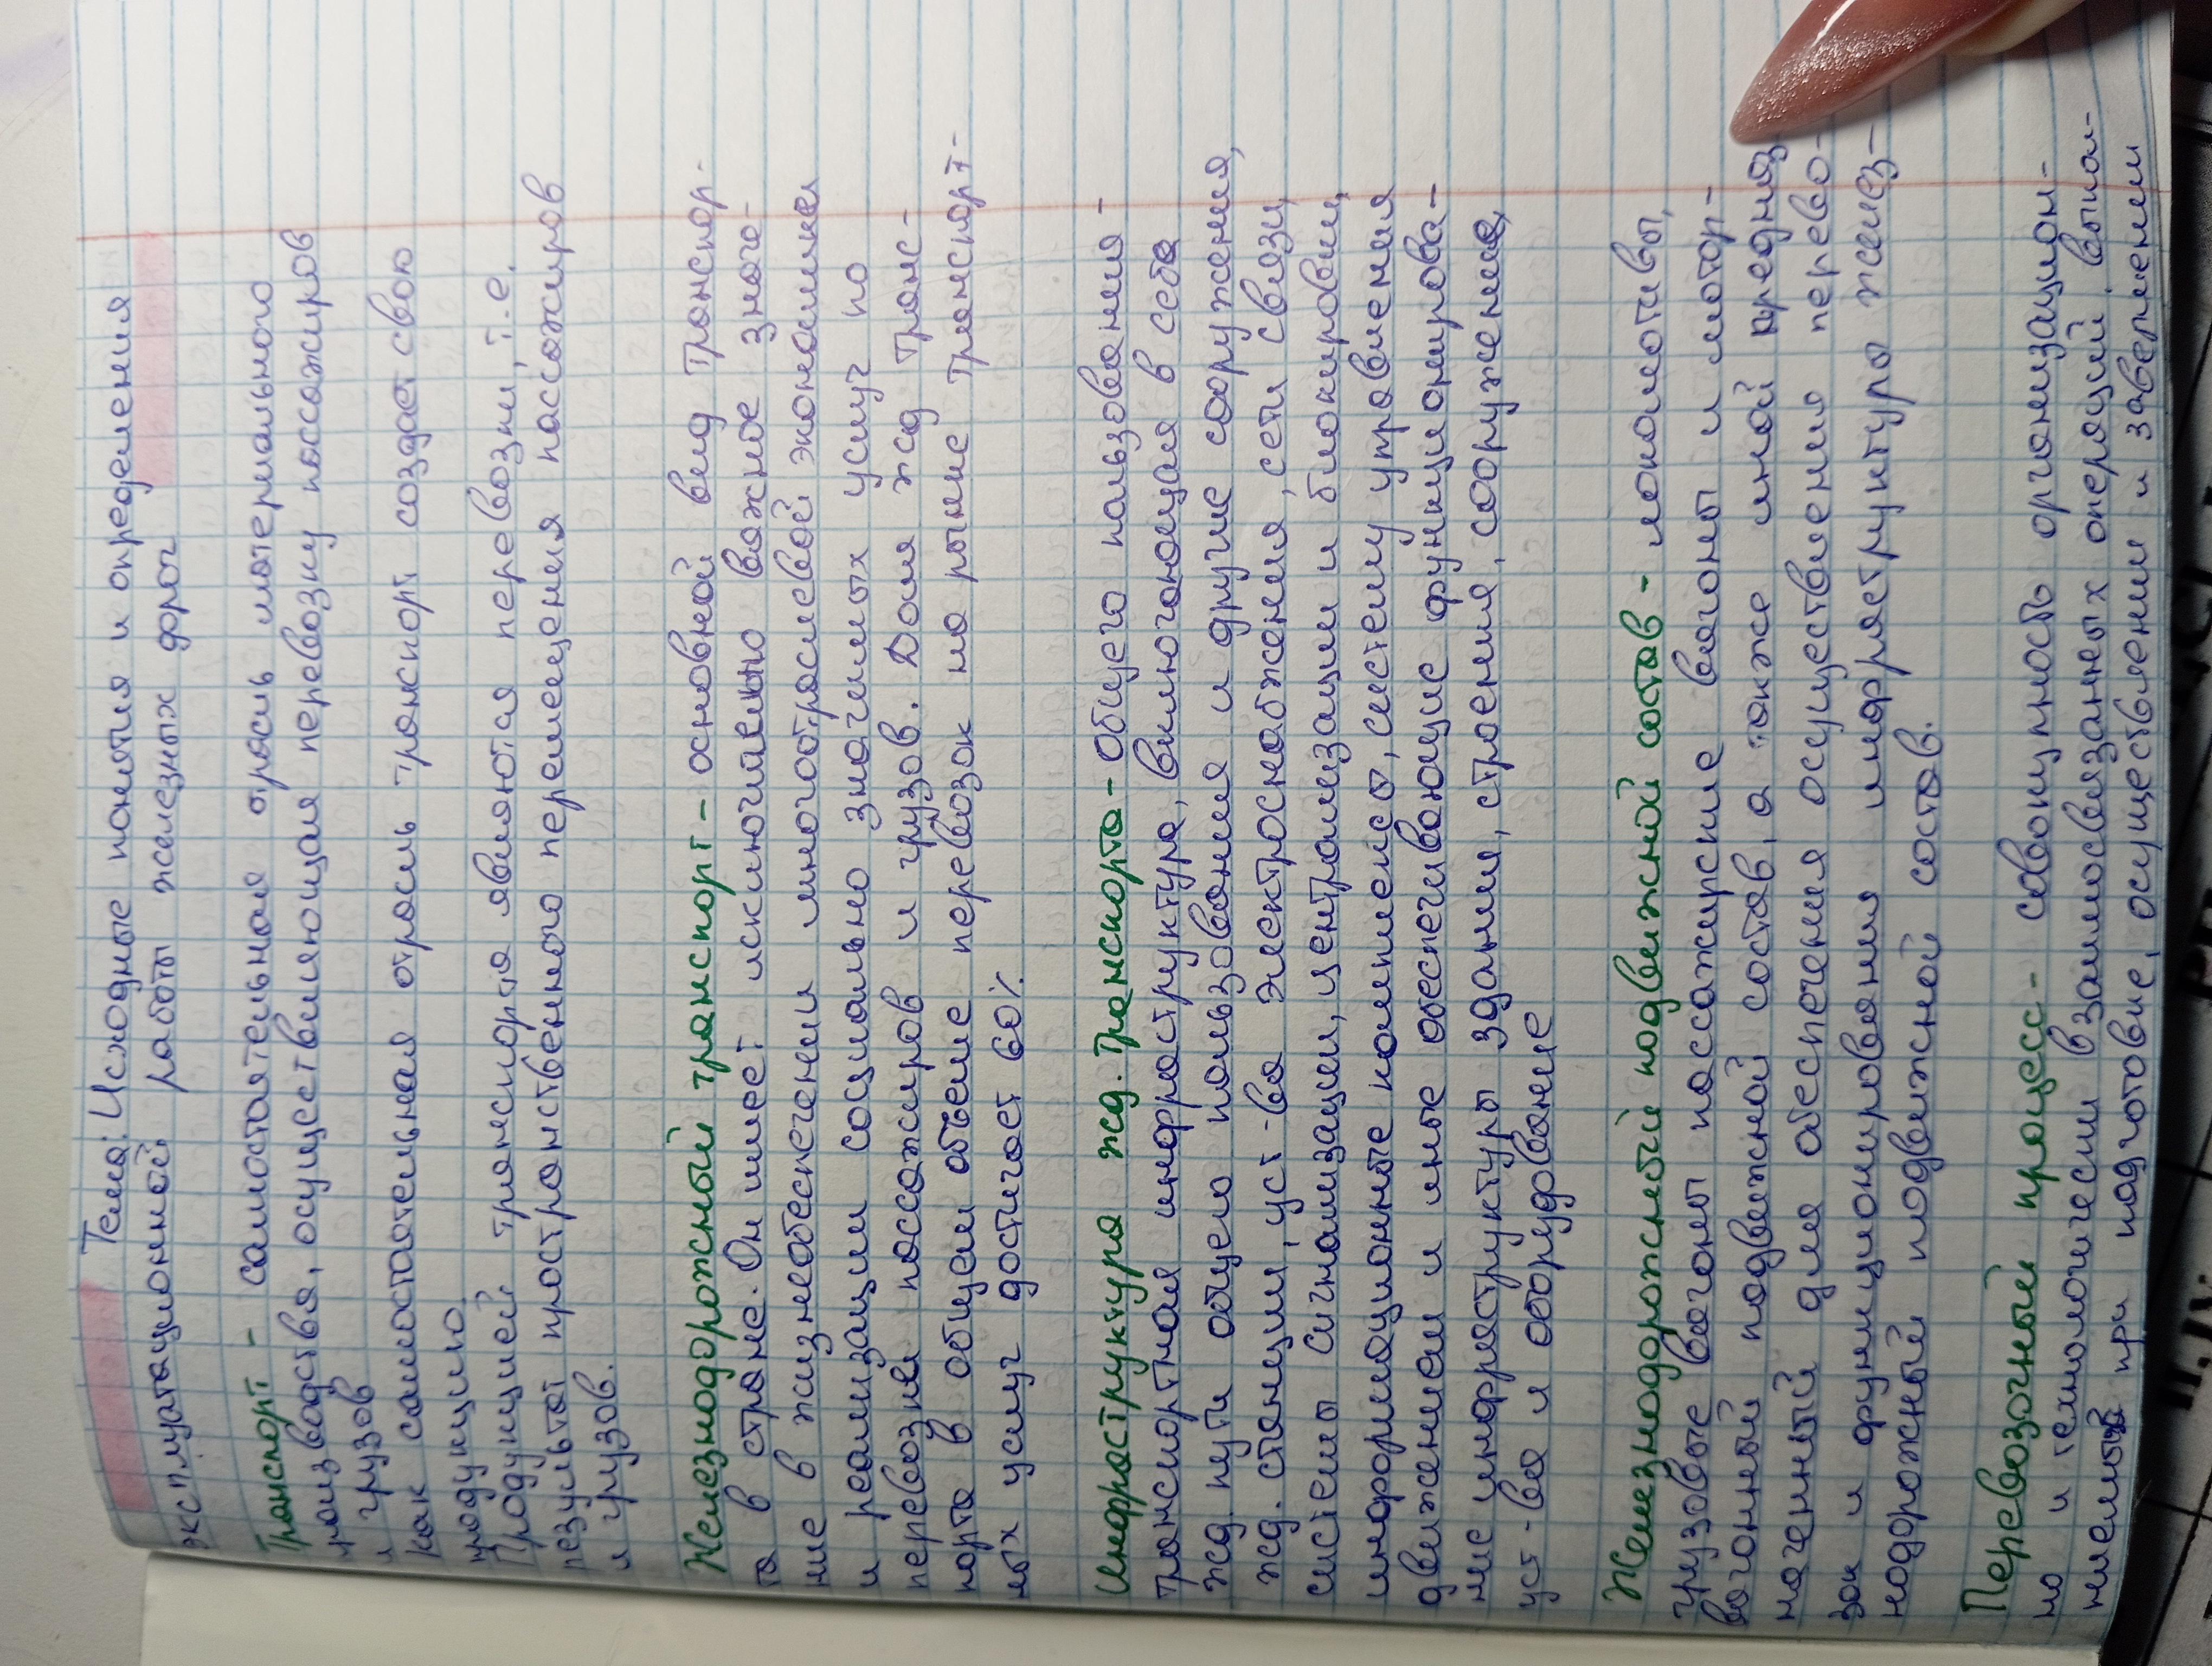 Тема: Исходные понятия и определения
эксплуатационной работы железных дорог
Транспорт - самостоятельная отрасль материального
производства, осуществляющая перевозку пассажиров
и грузов
Как самостоятельная отрасль транспорт создает свою
продукцию.
Продукцией транспорта являются перевозки, т.е.
результат пространственного перемещения пассажиров
и грузов.
Железнодорожный транспорт - основной вид транспор-
та в стране. Он имеет исключительно важное значе-
ние в жизнеобеспечении многоотраслевой экономики
и реализации социально значимых услуг по
перевозке пассажиров и грузов. Доля жд транс-
порта в общем объеме перевозок на рынке транспорт-
ных услуг достигает 60%
Инфраструктура жд. транспорта - общего пользования -
транспортная инфраструктура, включающая в себя
жд. пути общего пользования и другие сооружения,
жд. станции, уст-ва электроснабжения, сети связи,
системы сигнализации, централизации и блокировки,
информационные комплексы, систему управления
движением и иные обеспечивающие функционирова-
ние инфраструктуры здания, строения, сооружения,
уст-ва и оборудование
Железнодорожный подвижной состав - локомотивы,
грузовые вагоны пассажирские вагоны и мотор-
вагонный подвижной состав, а также иной предназ-
наченный для обеспечения осуществления перево-
зок и функционирования инфраструктуры желез-
нодорожный подвижной состав.
Перевозочный процесс - совокупность организацион-
но и технологически взаимосвязанных операций, выпол-
няемых при подготовке, осуществлении и завершении